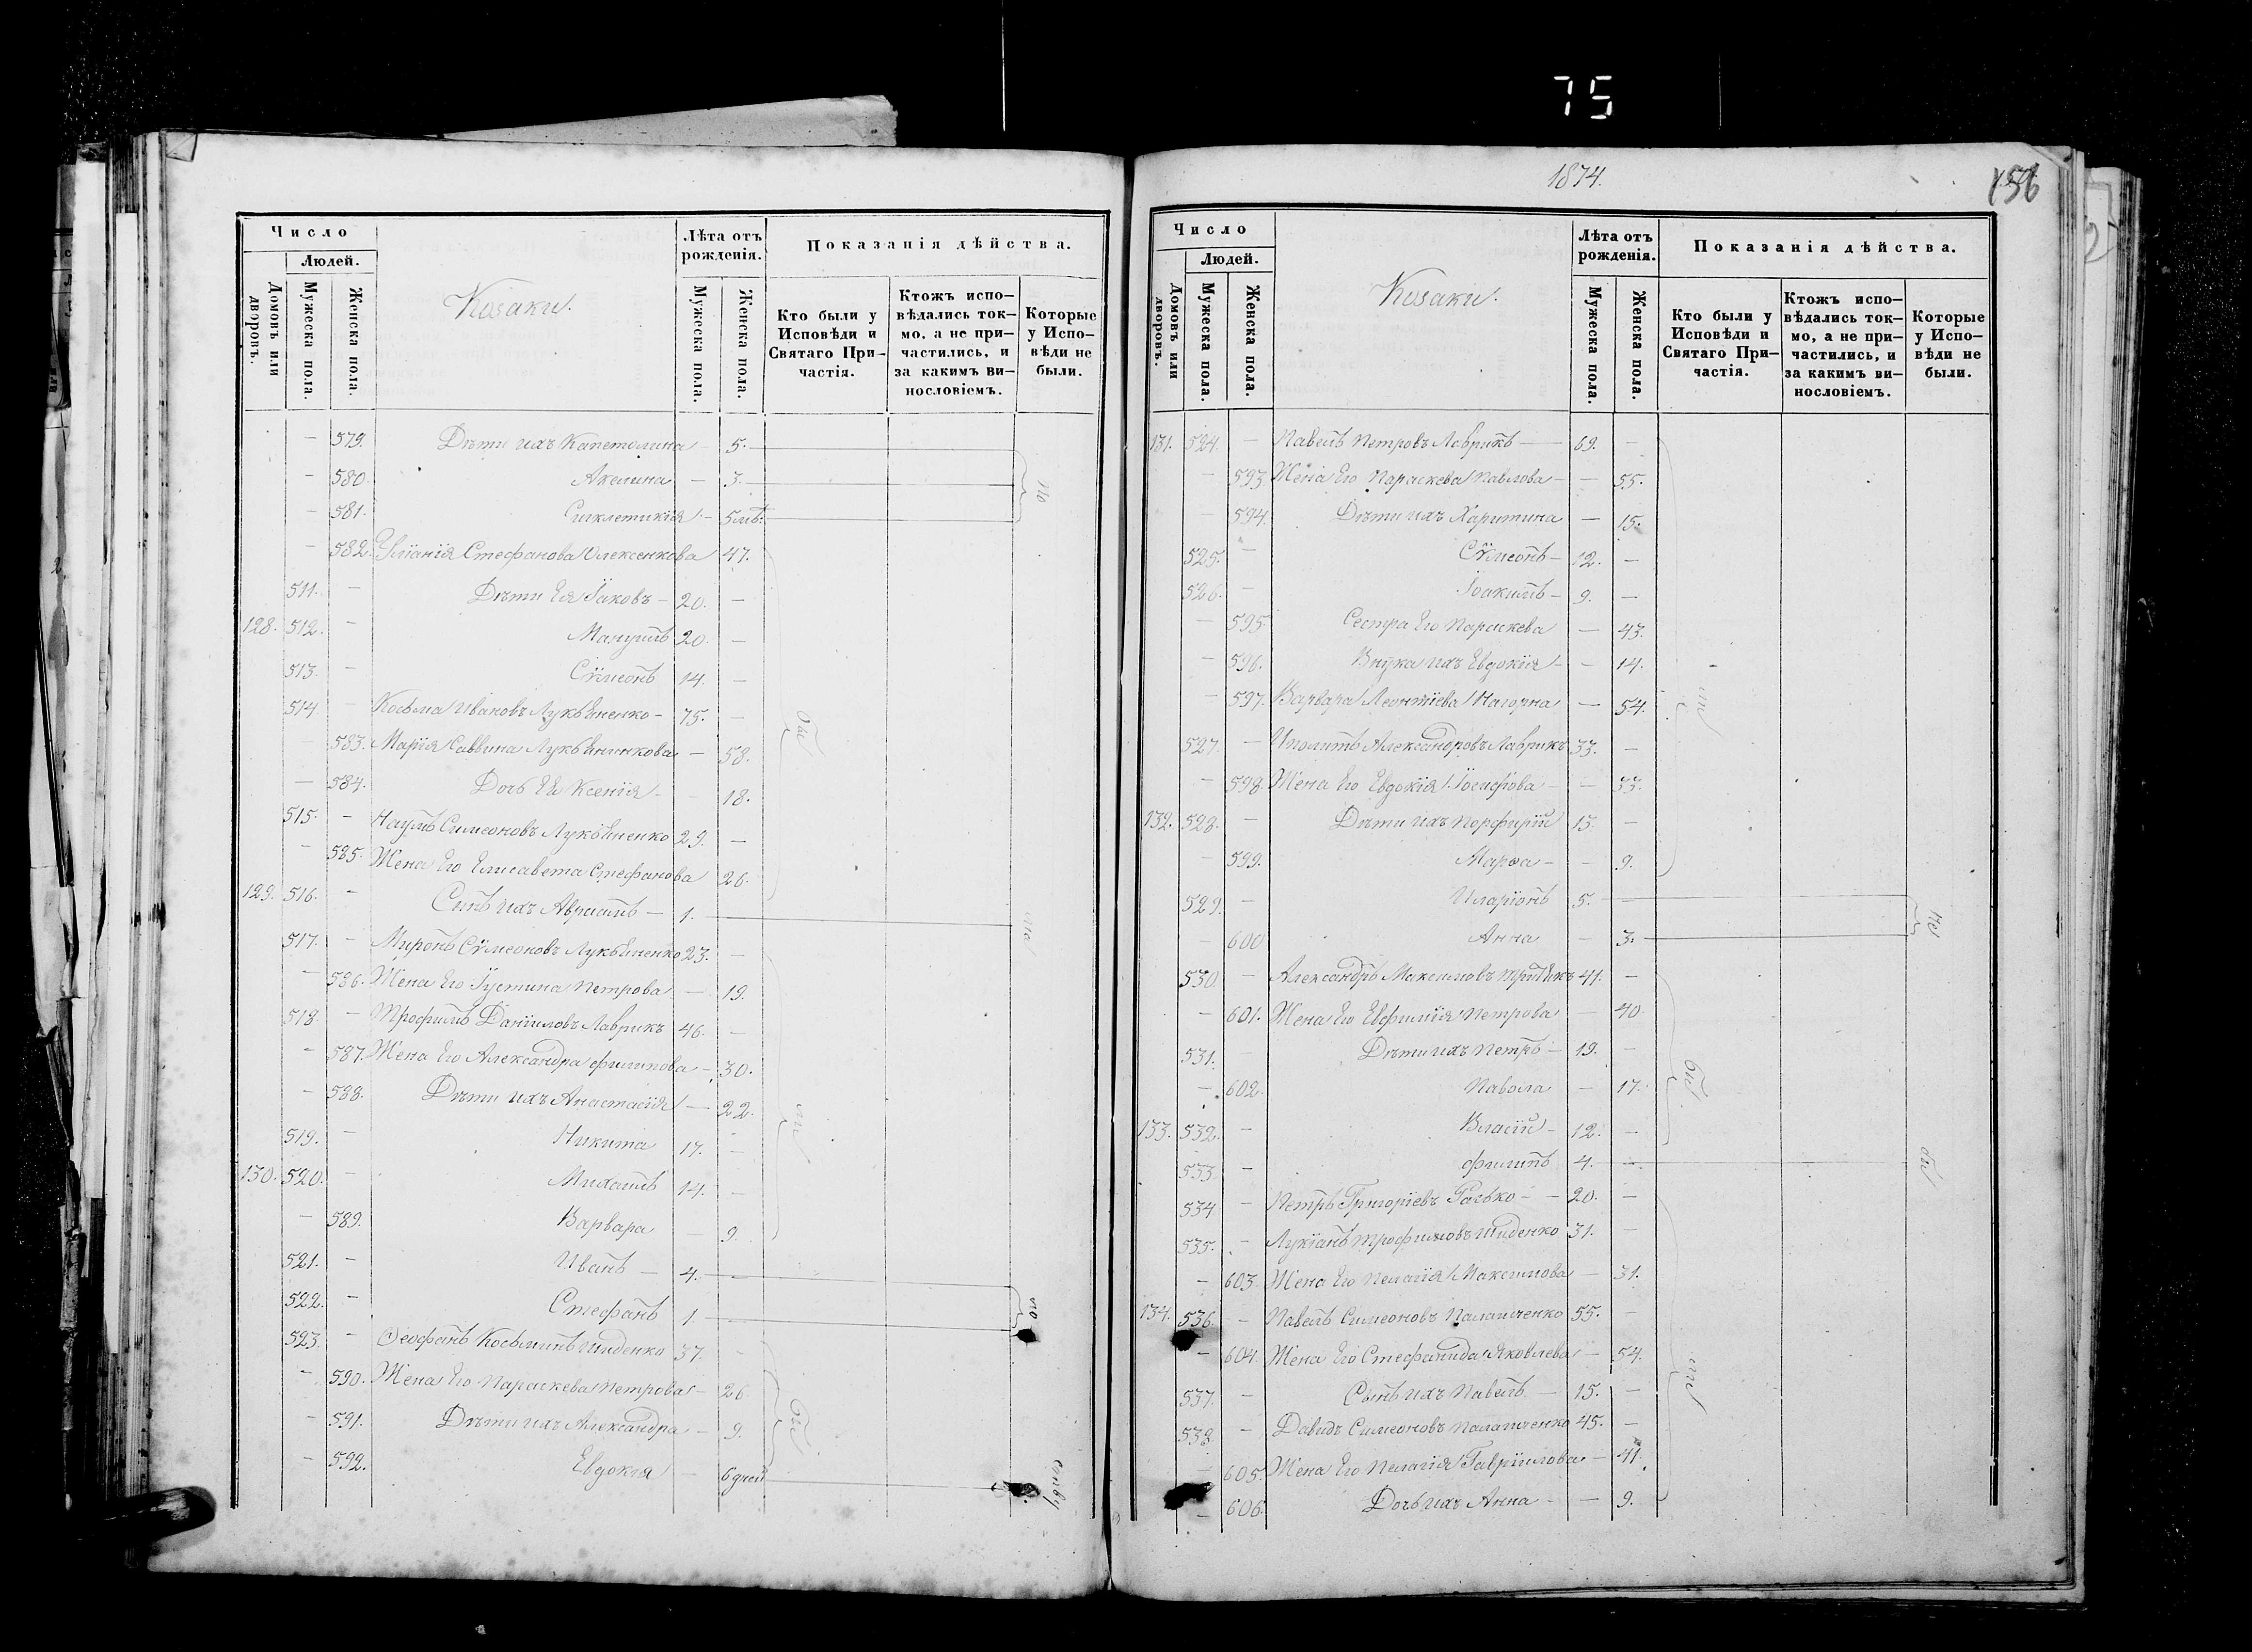 75
Число
Людей.
Домовъ или дворовъ.
Мужеска пола.
Женска пола.
Козаки.
Лѣта отъ рожденія.
Мужеска пола.
Женска пола.
Показанія дѣйства.
Кто были у Исповѣди и Святаго Причастія.
Ктожъ исповѣдались токмо, а не причастились, и за какимъ винословіемъ.
Которые у Исповѣди не были.
— 579. Дѣти ихъ Капетолина — 5.
— 580. Акелина — 3.
— 581. Сигклетикія — 5 мѣ.
— 582. Улiанiя Стефанова Олексенкова 47.
511. — Дѣти Ея Іаковъ — 20. —
128. 512. — Мануилъ 20. —
513. — Сѵмеонъ 14. —
514. — Косьма Ивановъ Лукьяненко — 75. —
— 583. Марія Саввина Лукьяненкова — 58.
— 584. Дочь Ея Ксенія — 18.
515. — Наумъ Симеоновъ Лукьяненко 29. —
— 585. Жена Его Елисавета Стефанова 26.
129. 516. — Сынъ ихъ Авраамъ — 1.
517. — Миронъ Сѵмеоновъ Лукьяненко 23. —
— 586. Жена Его Іустина Петрова — 19.
518. — Трофимъ Даніиловъ Лаврикъ 46. —
— 587. Жена Его Александра Филипова — 30.
— 588. Дѣти ихъ Анастасія — 22.
519. — Никита 17. —
130. 520. — Михаилъ 14. —
— 589. Варвара — 9.
521. — Иванъ — 4. —
522. — Стефанъ 1. —
523. — Ѳеофанъ Косьминъ Шиденко 37. —
— 590. Жена Его Параскева Петрова — 26.
— 591. Дѣти ихъ Александра — 9.
— 592. Евдокія — 6 дней
1874.
156
Число
Людей.
Домовъ или дворовъ.
Мужеска пола.
Женска пола
Козаки.
Лѣта отъ рожденія.
Мужеска пола.
Женска пола.
Показанія дѣйства.
Кто были у Исповѣди и Святаго Причастія.
Ктожъ исповѣдались токмо, а не причастились, и за какимъ винословіемъ.
Которые у Исповѣди не были.
131. 524. — Павелъ Петровъ Лаврикъ — 69. —
— 593. Жена Его Параскева Павлова — — 55.
— 594. Дѣти ихъ Харитина — 15.
525. — Сѵмеонъ — 12. —
526. — Іоакимъ — 9. —
— 595. Сестра Его Параскева — 43.
— 596. Внука ихъ Евдокія — — 14.
— 597. Варвара Леонтіева Нагорна — 54.
527. — Иполитъ Александровъ Лаврикъ 33. —
— 598. Жена Его Евдокія Іосифова — — 33.
132. 528. — Дѣти ихъ Порфирій 13. —
— 599. Марѳа — — 9.
529. — Иларіонъ 5. —
— 600 Анна — 3.
530. — Александръ Максимовъ 41. —
— 601. Жена Его Евфимія Петрова — 40
531. — Дѣти ихъ Петръ — 19. —
— 602. Павола — 17.
133. 532. — Власій — 12. —
533. — Филипъ 4. —
534. — Петръ Григоріевъ — 20. —
535. — Лукіанъ Трофимовъ Шиденко 31. —
— 603. Жена Его Пелагія Максимова — 31.
134. 536. — Павелъ Симеоновъ Палащенко 55. —
— 604. Жена Его Стефанида Яковлева — 54.
537. — Сынъ ихъ Павелъ — 15. —
538. — Давидъ Симеоновъ Палащенко 45. —
— 605. Жена Его Пелагія Гавріилова — 41.
— 606. Дочь ихъ Анна — — 9.